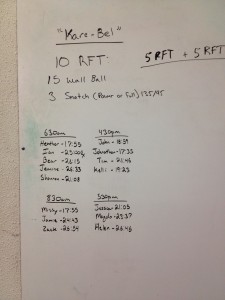 "Kare-Bel"
10 RFT:
5 RFT + 5 RFT
15 Wall Ball
3 Snatch (Power or Full) 135/95
630am
Heather - 17:55
Ian -
Bear - 26:15
- 26:33
Shannon - 21:08
430pm
John - 18:39
Johnathan - 17:33
Tim - 21:46
Kelli - 19:23
830am
Misty - 17:55
Jamie - 24:43
Zack - 26:54
530pm
Jessica 21:03
- 25:37
Helen - 26:46